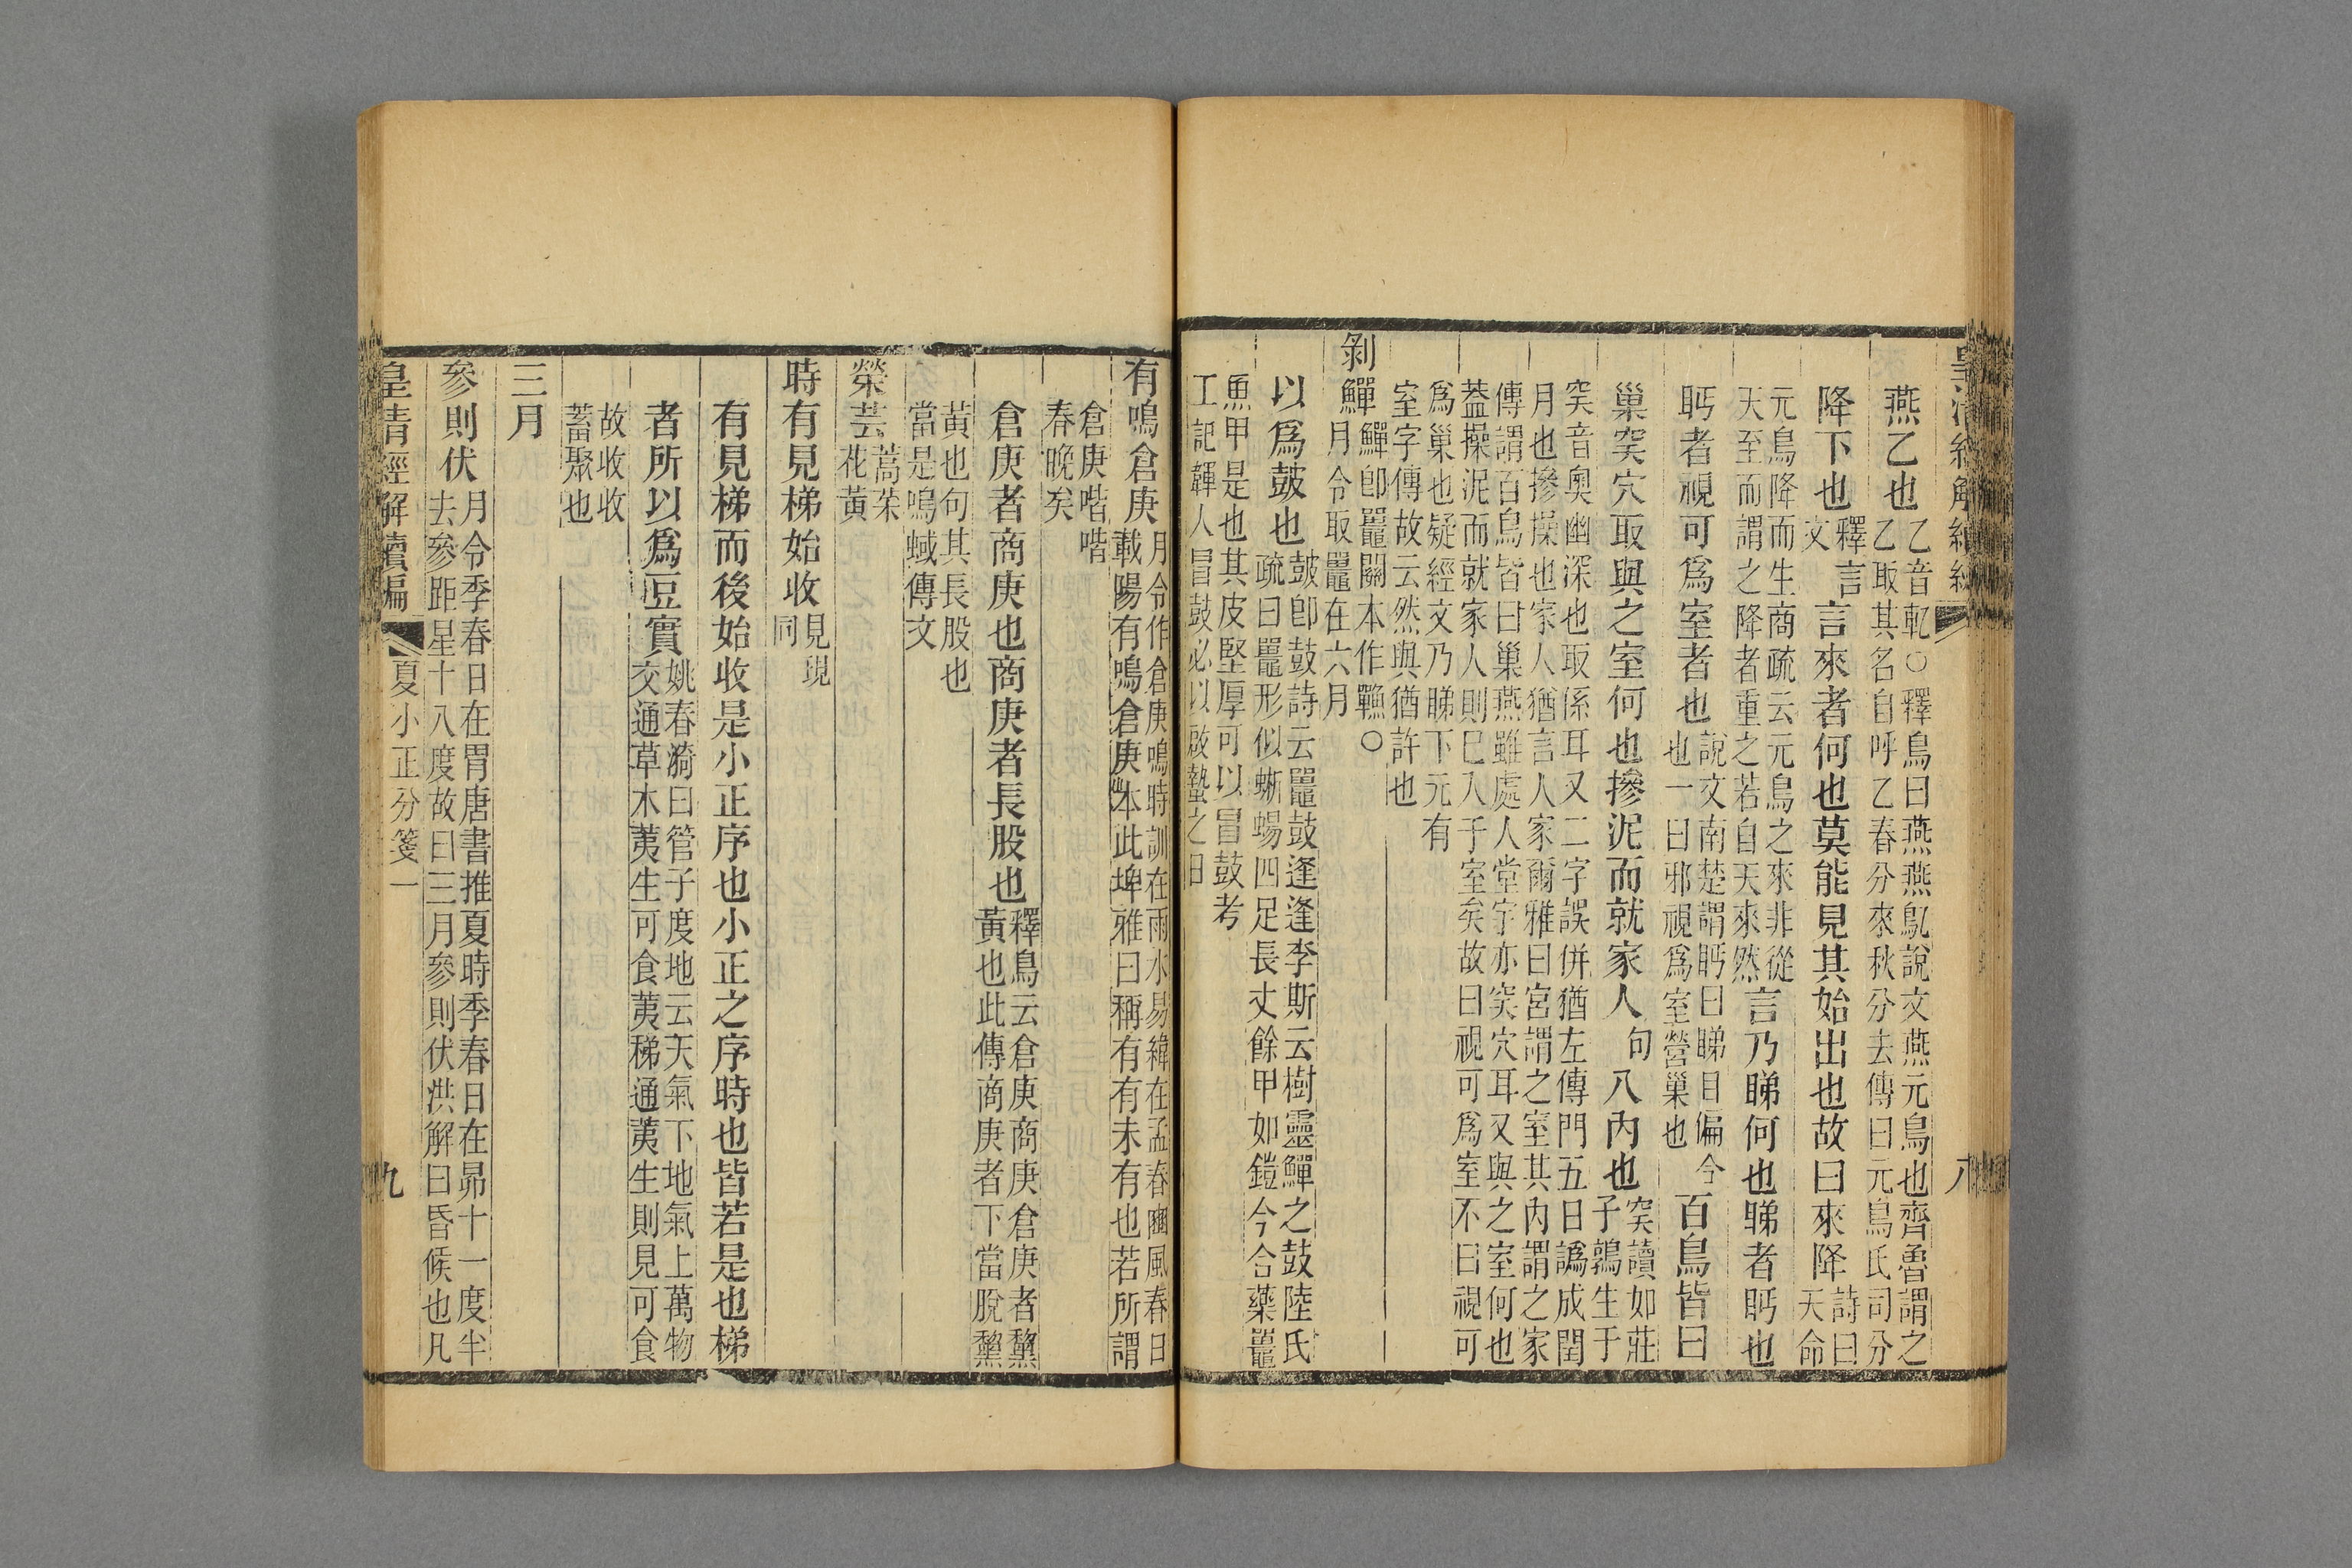 燕乙也乙音軋○釋鳥曰燕燕鳦說文燕元鳥也齊魯謂之
乙取其名自呼乙春分來秋分去傳曰元鳥氏司分
降下也釋言
文言來者何也莫能見其始出也故曰來降詩曰
天命
元鳥降而生商疏云元鳥之來非從
天至而謂之降者重之若自天來然言乃睇何也睇者眄也
眄者視可爲室者也說文南楚謂眄曰睇目偏令
也一曰邪視爲室營巢也百鳥皆曰
巢突穴取與之室何也摻泥而就家人句入內也突讀如莊
子鶉生于
突音奧幽深也取係耳又二字誤併猶左傳門五日譌成閏
月也摻操也家人猶言人家爾雅曰宮謂之室其內謂之家
傳謂百鳥皆曰巢燕雖處人堂宇亦突穴耳又與之室何也
蓋操泥而就家人則已入于室矣故曰視可爲室不曰視可
爲巢也疑經文乃睇下元有
室字傳故云然與猶許也
剝鱓鱓卽鼉關本作鼍○
月令取鼉在六月
以爲鼓也鼓卽鼓詩云鼉鼓逢逢李斯云樹靈鱓之鼓陸氏
疏曰鼉形似蜥蜴四足長丈餘甲如鎧今合藥鼉
魚甲是也其皮堅厚可以冒鼓考
工記韗人冒鼓必以啟蟄之日
八
有鳴倉庚月令作倉庚鳴時訓在雨水易緯在孟春豳風春日
載陽有鳴倉庚本此埤雅曰稱有有未有也若所謂
倉庚喈喈
春晚矣
倉庚者商庚也商庚者長股也釋鳥云倉庚商庚倉庚者黧
黃也此傳商庚者下當脫黧
黃也句其長股也
當是鳴蜮傳文
榮芸蒿茱
花黃
時有見稊始收見現
同
有見稊而後始收是小正序也小正之序時也皆若是也稊
者所以爲豆實姚春漪曰管子度地云天氣下地氣上萬物
交通草木荑生可食荑稊通荑生則見可食
故收收
蓄聚也
三月
參則伏月令季春日在胃唐書推夏時季春日在昴十一度半
去參距星十八度故曰三月參則伏洪解曰昏候也凡
皇清經解續編 夏小正分箋一 九